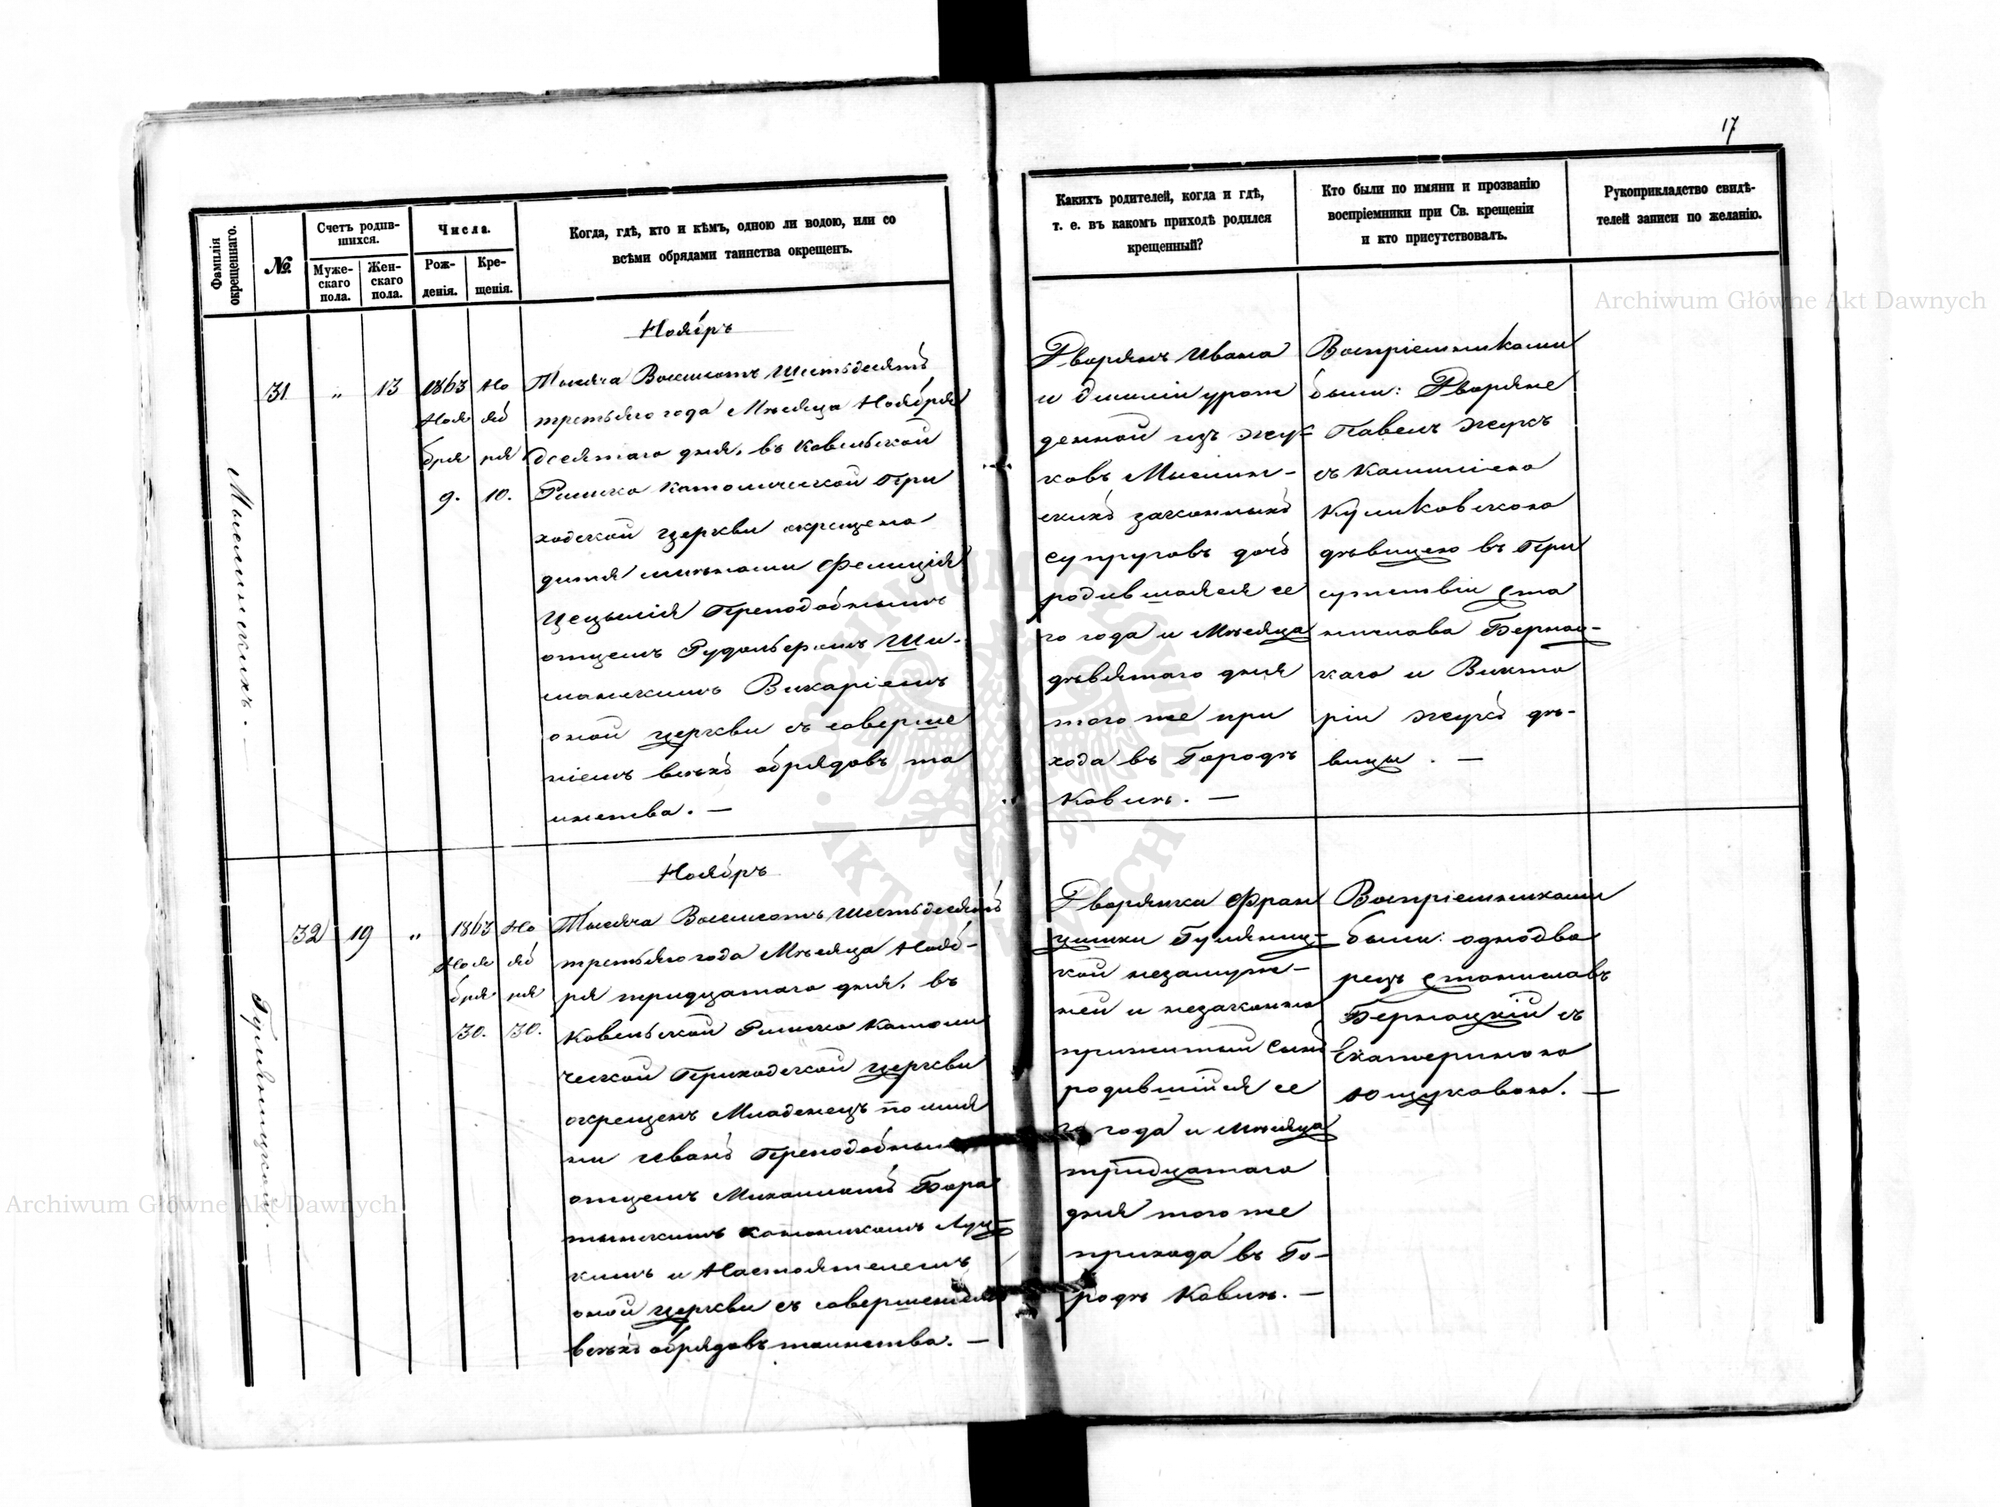 17
Фамилія окрещеннаго.
№
Счетъ родившихся.
Мужескаго пола.
Женскаго пола.
Числа.
Рожденія.
Крещенія.
Когда, гдѣ, кто и кѣмъ, одною ли водою, или со
всѣми обрядами таинства окрещенъ.
Какихъ родителей, когда и гдѣ,
т. е. въ какомъ приходѣ родился
крещенный?
Кто были по имяни и прозванію
воспріемники при Св. крещеніи
и кто присутствовалъ.
Рукоприкладство свидѣ-
телей записи по желанію.
Archiwum Główne Akt Dawnych
Мыслинскихъ. —
31
„
13
1863
Ноя
бря
9.
Но
яб
ря
10.
Ноябрь
Тысяча Восемсотъ Шестьдесятъ
третьяго года Мѣсяца Ноября
десятаго дня, въ Ковельской
Римско Католической При
ходской церкви окрещено
дитя имѣнами Фелиція
Цецылія Преподобнымъ
отцемъ Рудольфомъ Ши-
манскимъ Викаріемъ
оной церкви съ соверше
ніемъ всѣхъ обрядовъ та
инства. —
Дворянъ Ивана
и Эмиліи урож
денной изъ Жу-
ковъ Мыслин-
скихъ законныхъ
супруговъ дочь
родившаяся се
го года и Мѣсяца
дѣвятаго дня
того же при
хода въ Городѣ
Ковлѣ. —
Воспріемниками
были: Дворяне
Павелъ Жукъ
съ Камиліею
Куликовскою
дѣвицею въ При
сутствіи Ста
нислава Бернац-
каго и Викто
ріи Жукъ дѣ-
вицы. —
Гуляницкой. —
32
19
„
1863
Ноя
бря
30.
Но
яб
ря
30.
Ноябрь
Тысяча Восемсотъ Шестьдесятъ
третьяго года Мѣсяца Нояб-
ря тридцатаго дня, въ
Ковельской Римско Католи
ческой Приходской церкви
окрещенъ Младенецъ по имя
ни Иванъ Преподобнымъ
отцемъ Михаиломъ Бора
тынскимъ Каноникомъ Луц-
кимъ и Настоятелемъ
оной церкви съ совершеніемъ
всѣхъ обрядовъ таинства. —
Дворянки Фран
цишки Гуляниц-
кой незамуж-
ней и незаконно
прижитый Сынъ
родившійся се
го года и Мѣсяца
тридцатаго
дня того же
прихода въ Го-
родѣ Ковлѣ. —
Воспріемниками
были: однодво
рецъ Станиславъ
Бернацкій съ
Екатериною
Ющуковою. —
Archiwum Główne Akt Dawnych
ARCHIWUM GŁÓWNE AKT DAWNYCH